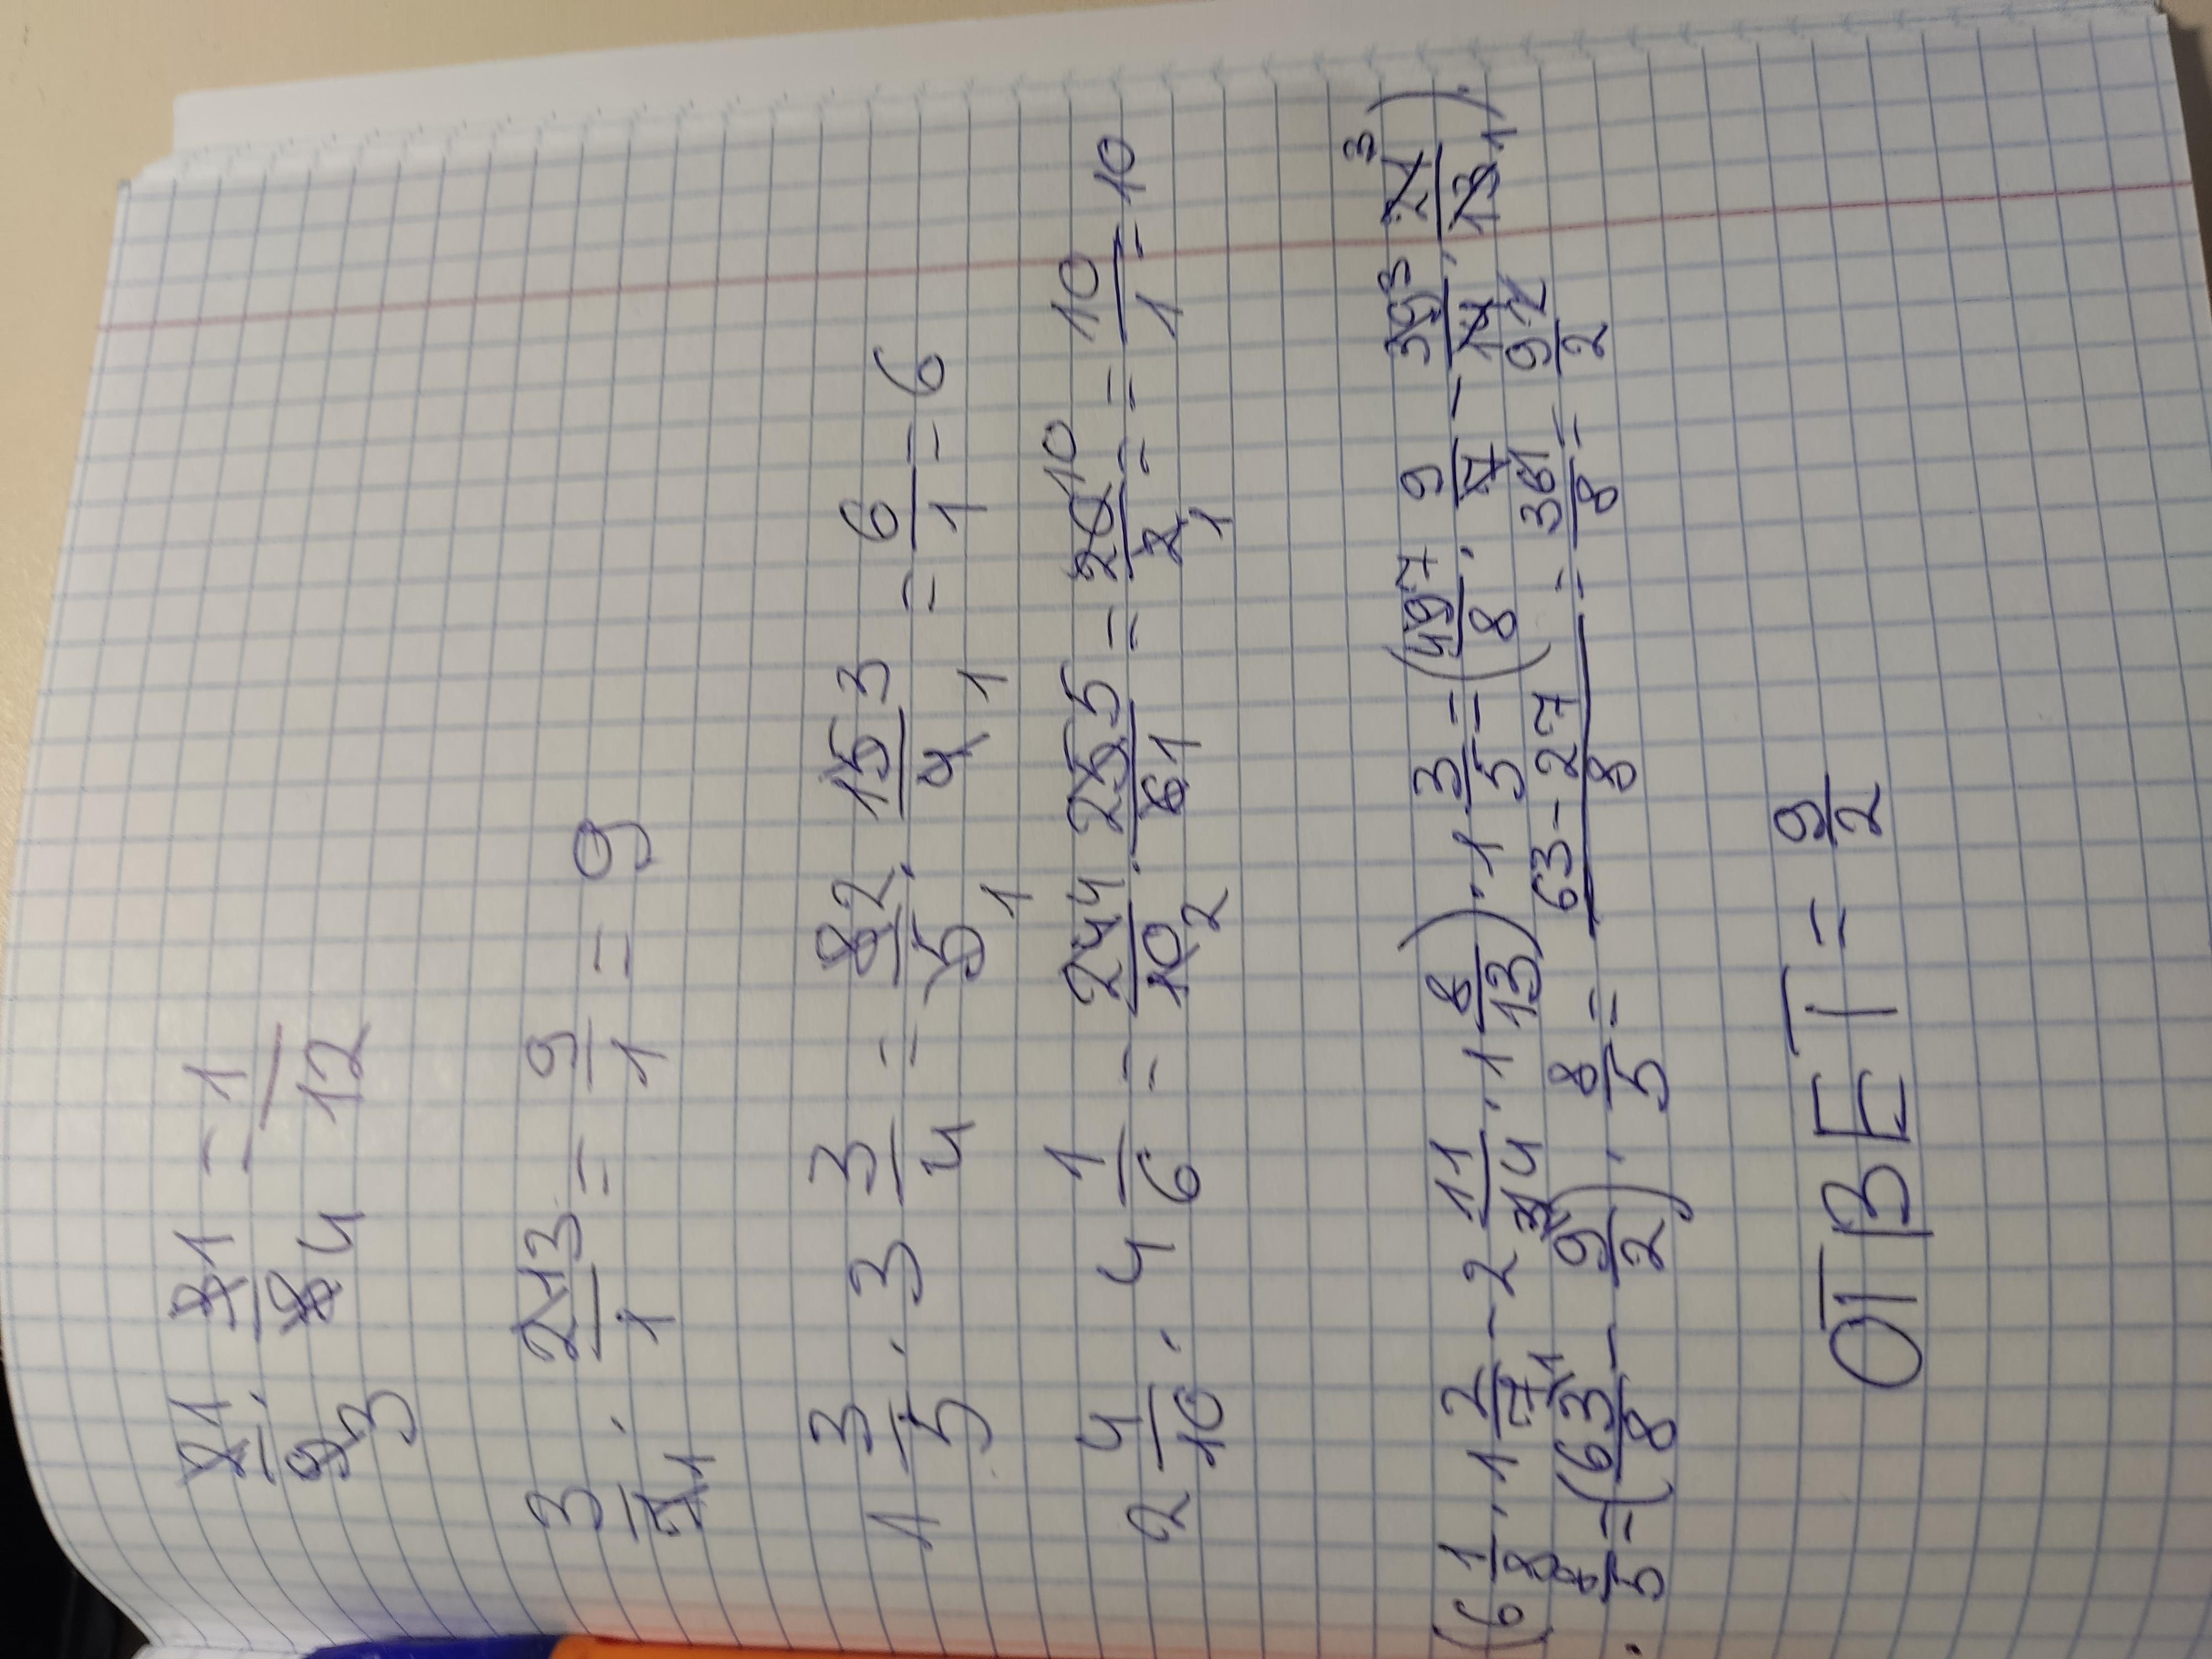 21/93 · 31/84 = 1/12
3/711 · 2113/1 = 9/1 = 9
1 3/5 · 3 3/4 = 82/51 · 153/41 = 6/1 = 6
2 4/10 · 4 1/6 = 244/102 · 255/61 = 2010/21 = = 10/1 = 10
(6 1/8 · 1 2/7 - 2 11/14 · 1 8/13) · 1 3/5 = (497/8 · 9/7 - 393/14 · 213/131) ·
· 8/5 = (63/8 - 9/2) · 8/5 = 63-27/8 = 36/8 = 9/2
ОТВЕТ = 9/2